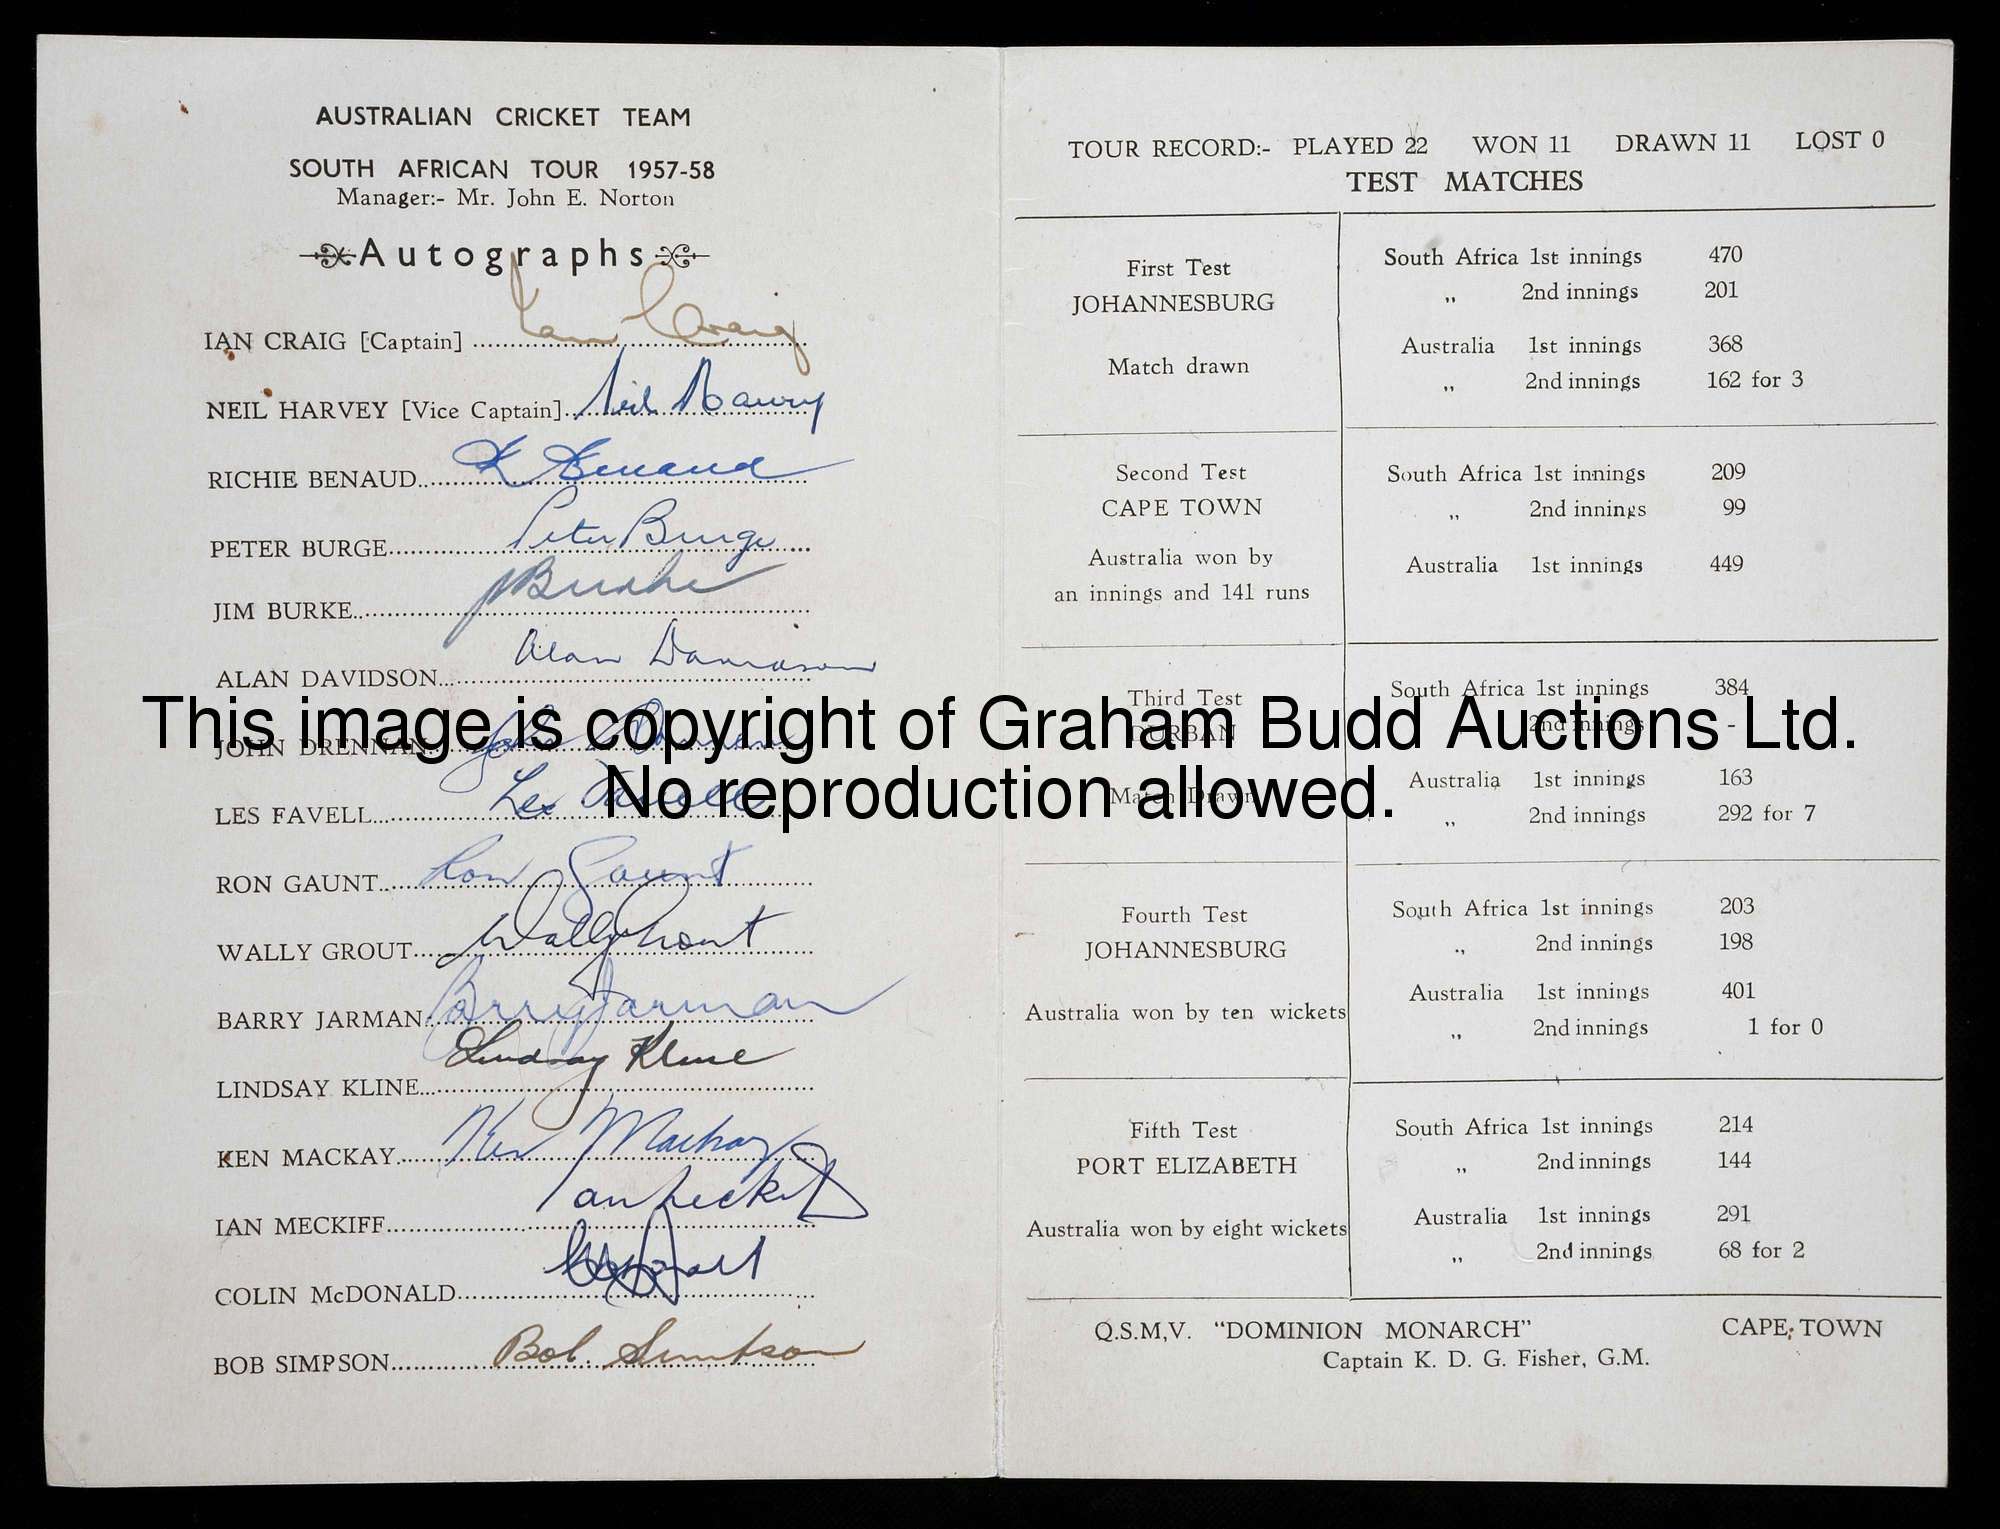 AUSTRALIAN CRICKET TEAM
SOUTH AFRICAN TOUR 1957-58
Manager:- Mr. John E. Norton
Autographs
IAN CRAIG [Captain] Ian Craig
NEIL HARVEY [Vice Captain] Neil Harvey
RICHIE BENAUD R Benaud
PETER BURGE Peter Burge
JIM BURKE J Burke
ALAN DAVIDSON Alan Davidson
JOHN DRENNAN John Drennan
LES FAVELL Les Favell
RON GAUNT Ron Gaunt
WALLY GROUT Wally Grout
BARRY JARMAN Barry Jarman
LINDSAY KLINE Lindsay Kline
KEN MACKAY Ken Mackay
IAN MECKIFF Ian Meckiff
COLIN McDONALD
BOB SIMPSON Bob Simpson
TOUR RECORD:- PLAYED 22 WON 11 DRAWN 11 LOST 0
TEST MATCHES
First Test
JOHANNESBURG
Match drawn
South Africa 1st innings 470
„ 2nd innings 201
Australia 1st innings 368
„ 2nd innings 162 for 3
Second Test
CAPE TOWN
Australia won by
an innings and 141 runs
South Africa 1st innings 209
„ 2nd innings 99
Australia 1st innings 449
Third Test
DURBAN
Match Drawn
South Africa 1st innings 384
2nd innings -
Australia 1st innings 163
„ 2nd innings 292 for 7
Fourth Test
JOHANNESBURG
Australia won by ten wickets
South Africa 1st innings 203
„ 2nd innings 198
Australia 1st innings 401
„ 2nd innings 1 for 0
Fifth Test
PORT ELIZABETH
Australia won by eight wickets
South Africa 1st innings 214
„ 2nd innings 144
Australia 1st innings 291
„ 2nd innings 68 for 2
Q.S.M,V. "DOMINION MONARCH" CAPE TOWN
Captain K. D. G. Fisher, G.M.
This image is copyright of Graham Budd Auctions Ltd.
No reproduction allowed.